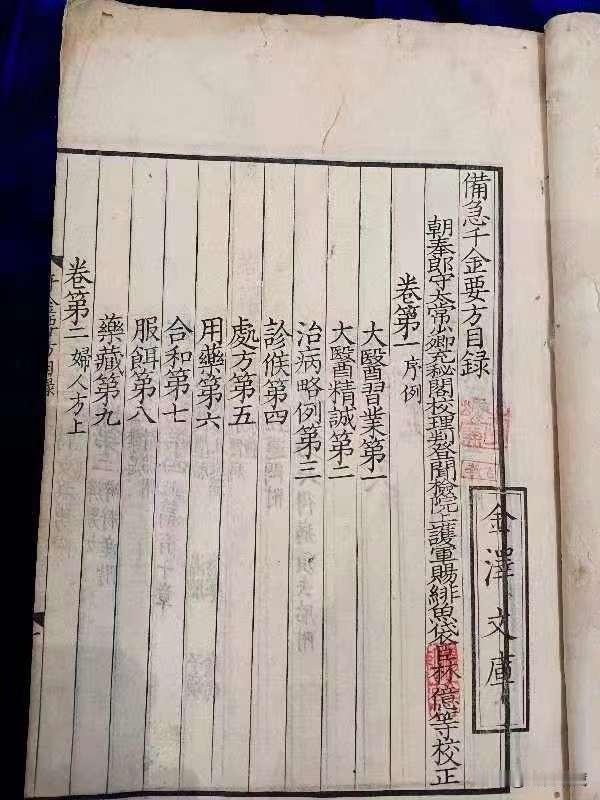 備急千金要方目録
朝奉郎守太常少卿充秘閣校理判登聞檢院上護軍賜緋魚袋臣林億等校正
卷第一 序例
大醫習業第一
大醫精誠第二
治病略例第三
診候第四
處方第五
用藥第六
合和第七
服餌第八
藥藏第九
卷第二 婦人方上
金澤文庫